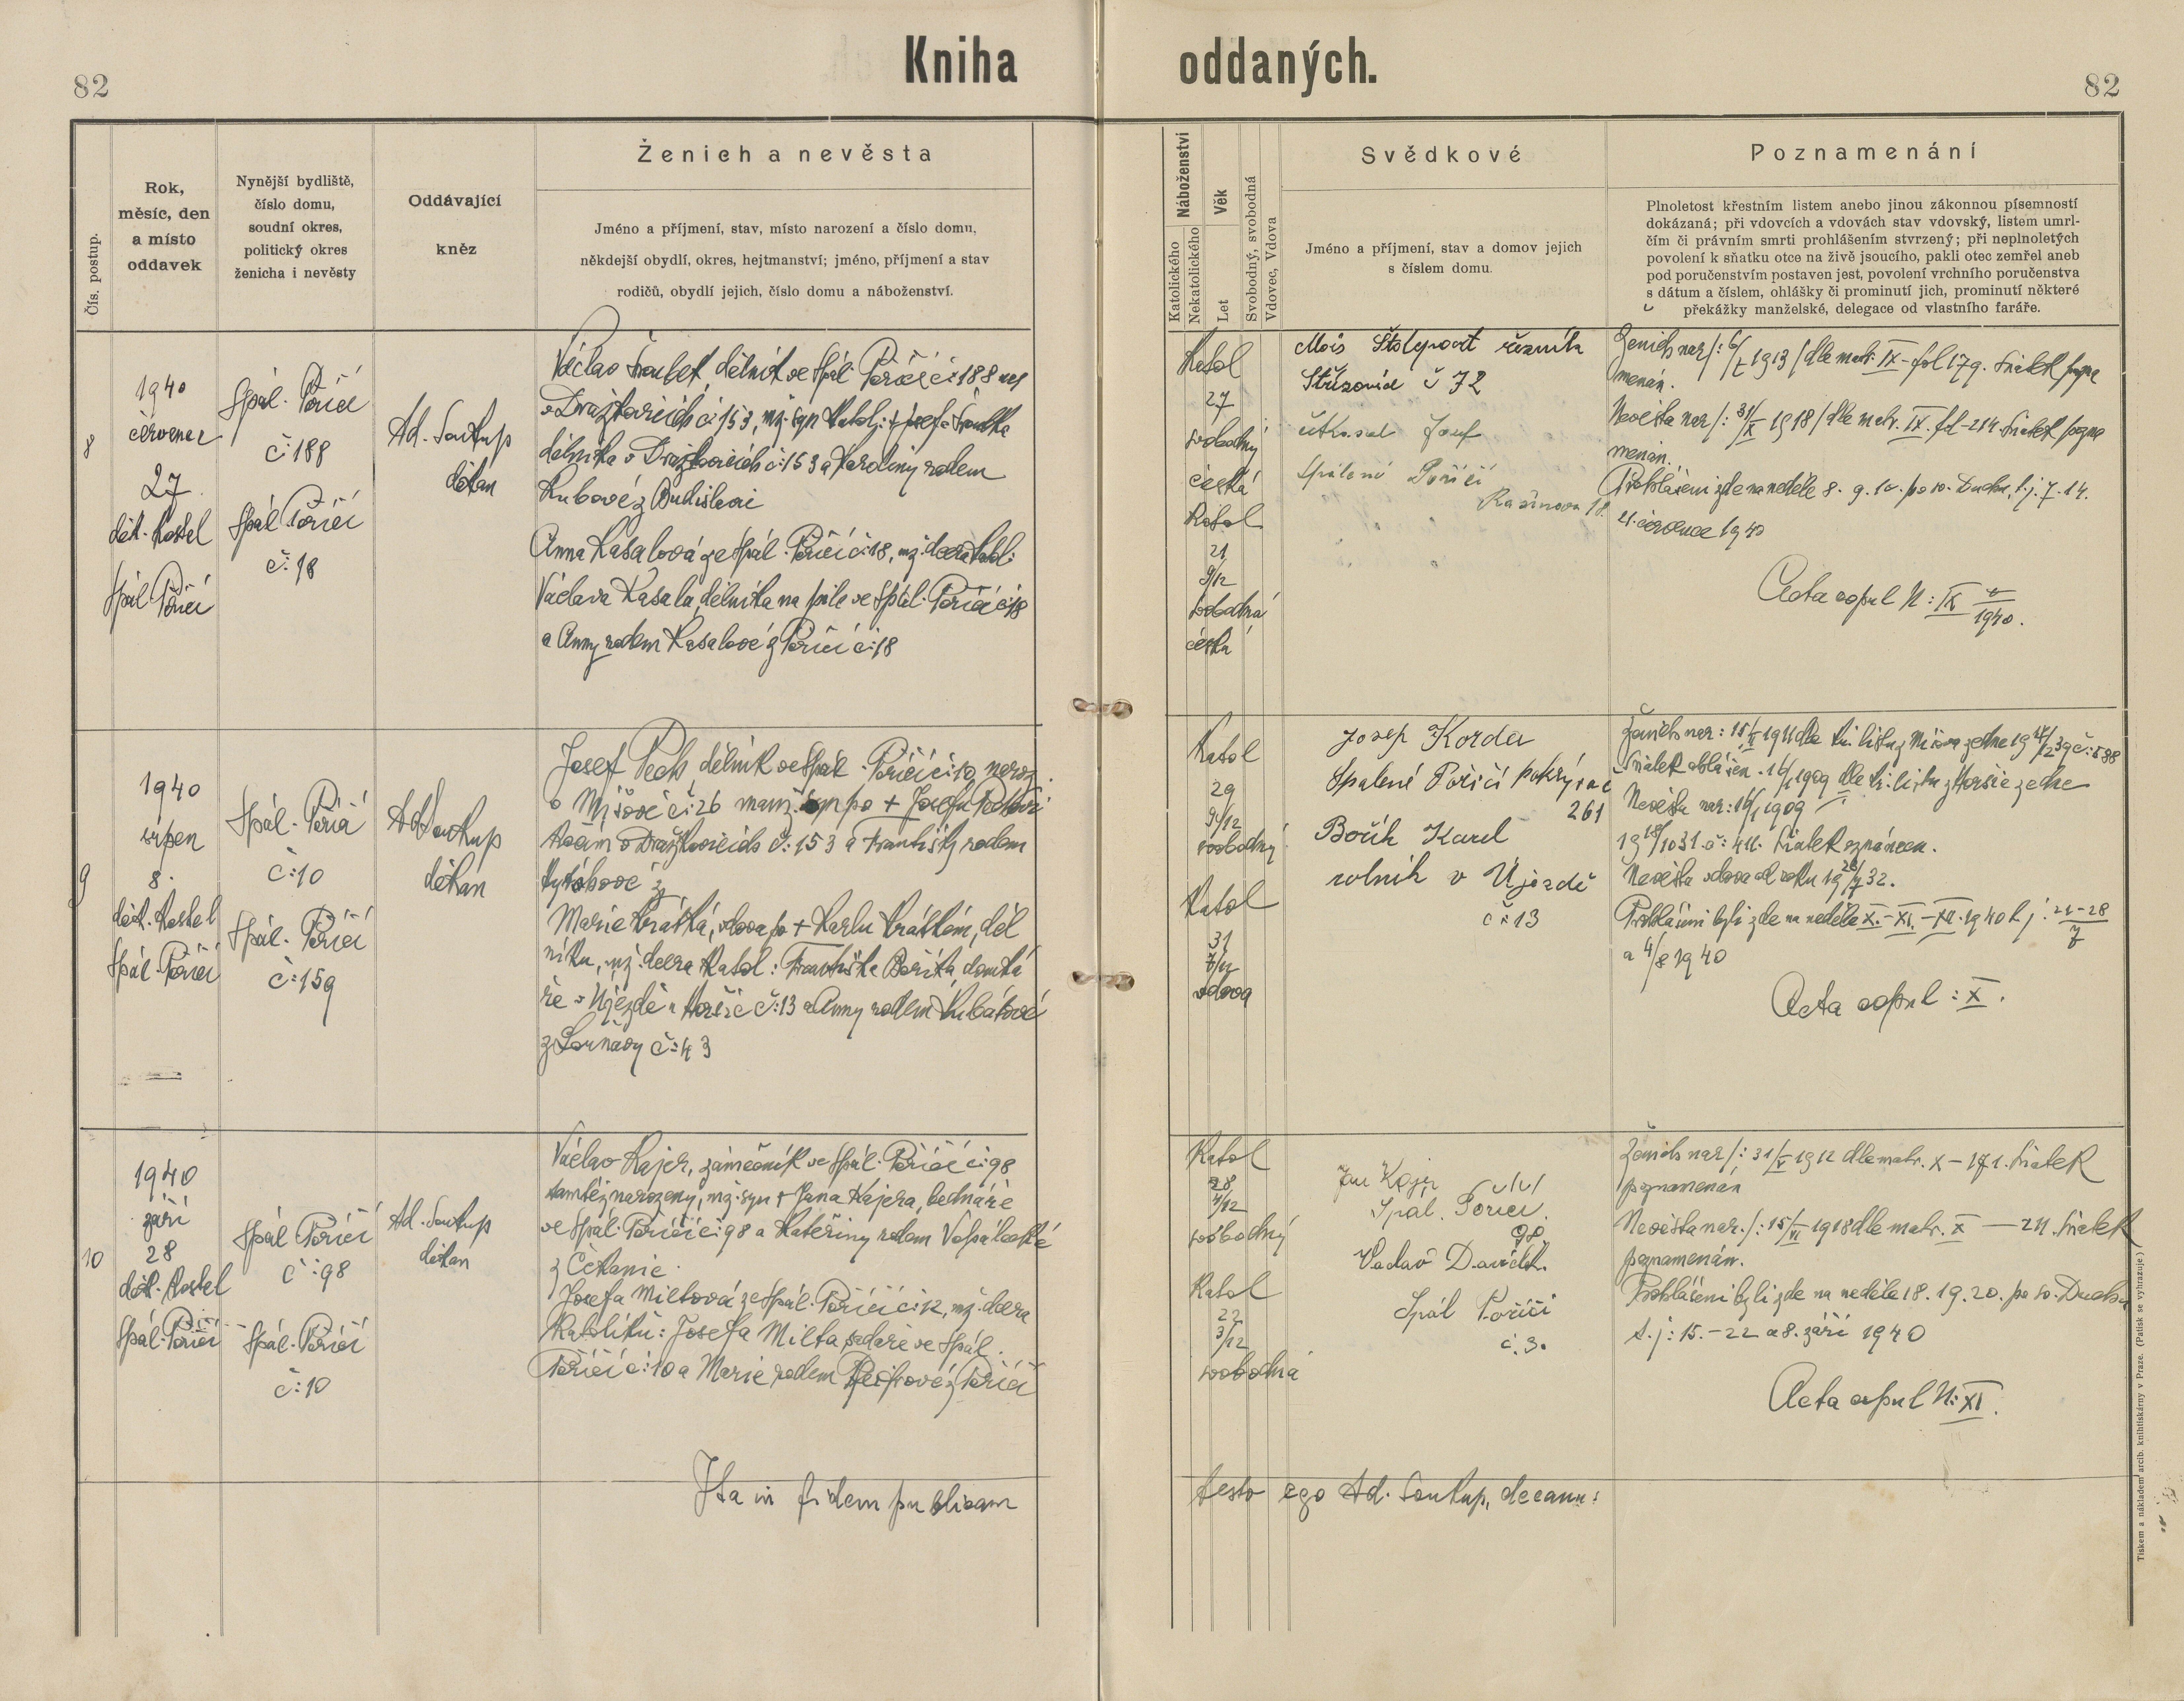 Kniha oddaných.
82
82
Čís. postup.
Rok,
měsíc, den
a místo
oddavek
Nynější bydliště,
číslo domu,
soudní okres,
politický okres
ženicha i nevěsty
Oddávající
kněz
Ženich a nevěsta
Jméno a příjmení, stav, místo narození a číslo domu,
někdejší obydlí, okres, hejtmanství; jméno, příjmení a stav
rodičů, obydlí jejich, číslo domu a náboženství.
Náboženství
Katolického
Nekatolického
Věk
Let
Svobodný, svobodná
Vdovec, Vdova
Svědkové
Jméno a příjmení, stav a domov jejich
s číslem domu.
Poznamenání
Plnoletost křestním listem anebo jinou zákonnou písemností
dokázaná; při vdovcích a vdovách stav vdovský, listem umrl-
čím či právním smrti prohlášením stvrzený; při neplnoletých
povolení k sňatku otce na živě jsoucího, pakli otec zemřel aneb
pod poručenstvím postaven jest, povolení vrchního poručenstva
s dátum a číslem, ohlášky či prominutí jich, prominutí některé
překážky manželské, delegace od vlastního faráře.
8
1940
červenec
27.
děk. kostel
Spál. Poříčí
Spál. Poříčí
č: 188
Spál. Poříčí
č: 18
Ad. Soukup
děkan
Václav dělník ve Spál. Poříčí č: 188 nar
v Dražkovicích č: 153, mž. syn katol: + Josefa
dělníka v Dražkovicích č: 153 a Karoliny rodem
z Budislavi
Anna Kasalová ze Spál. Poříčí č: 18, mž. dcera katol:
Václava Kasala, dělníka na pile ve Spál. Poříčí č: 18
a Anny rodem Kasalové z Poříčí č: 18
Katol
27
svobodný
česká
Katol
21
9/12
svobodná
česká
řezník
Střížovice č 72
Josef
Spálené Poříčí
18.
Ženich nar /: 6/ 1913 / dle matr. IX - fol 179. Sňatek pozna
menán.
Nevěsta nar /: 31/X 1918 / dle matr. IX. fol - 214. Sňatek pozna
menán.
Prohlášeni zde na neděle 8. 9. 10. po sv. Duchu, t. j. 7. 14.
21. července 1940
Acta copul N: IX
1940.
9
1940
srpen
8.
děk. kostel
Spál. Poříčí
Spál. Poříčí
č: 10
Spál. Poříčí
č: 159
Ad Soukup
děkan
Josef Pech, dělník ve Spál. Poříčí č: 10, naroz.
v Míšově č: 26 manž. syn po + Josefu Pechovi
v Dražkovicích č: 153 a Františky rodem
z
Marie Krátká, vdova po + Karlu Krátkém, děl
níku, mž. dcera katol: Františka Boříka domká
ře v Újezdě u Horšic č: 13 a Anny rodem Kubátové
č: 43
Katol
29
9/12
svobodný
Katol
31
7/12
vdova
Josef Korda
Spálené Poříčí pokrývač
261
Bořík Karel
rolník v Újezdě
č: 13
Ženich nar: 15/ 1911 dle kř. listu z Míšova ze dne
Nevěsta nar: 16/1 1909
Sňatek oznámen.
Nevěsta vdova od roku 1932.
Prohlášeni byli zde na neděle X. - XI. - XII. 1940 t. j: 21-28/7
a 4/8 1940
Acta copul: X.
10
1940
září
28
děk. kostel
Spál. Poříčí
Spál Poříčí
č: 98
Spál. Poříčí
č: 10
Ad. Soukup
děkan
Václav Kajer, zámečník ve Spál. Poříčí č: 98
tamtéž narozený, mž. syn + Jana Kajera, bednáře
ve Spál. Poříčí č: 98 a Kateřiny rodem
z Čekanic.
Josefa Miltová ze Spál. Poříčí č: 12, mž. dcera
katolíků: Josefa Milta, sedláře ve Spál.
Poříčí č: 10 a Marie rodem z Poříčí
Katol
28
4/12
svobodný
Katol
22
3/12
svobodná
Jan Kajer
Spál. Poříčí.
98.
Václav Davídek.
Spál Poříčí
č. 3.
Ženich nar /: 31/V 1912 dle matr. X - 171. Sňatek
poznamenán
Nevěsta nar. /: 15/VI 1918 dle matr. X — 211. Sňatek
poznamenán.
Prohlášeni byli zde na neděle 18. 19. 20. po sv. Duchu
t. j: 15. - 22 a 8. září 1940
Acta copul N: XI.
Ita in fidem publicam testor ego Ad. Soukup, decanus
Tiskem a nákladem arcib. knihtiskárny v Praze. (Patisk se vyhrazuje.)